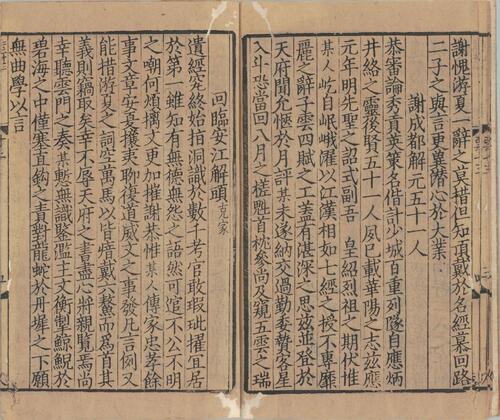 謝愧游夏一辭之莫措但知頂戴於名經纂回路
二子之與言更冀潛心於大業
謝成都解元五十一人
恭審論秀貢英策名偕計少城百重列隧自應炳
井絡之靈後賢五十一人夙已載華陽之志茲應
元年明先聖之詔式副吾 皇紹烈祖之期伏惟
某人屹自岷峨濯以江漢相如七經之授不專靡
麗之辭子雲四賦之工蓋有湛深之思茲並登於
天府聞允愜於月評某未遂納交過勤委贄客星
入斗恐當回八月之槎魁首桃矣尚及窺五雲之瑞
回臨安江解頭克家
遺經究終始拍洞識於數千考官敢瑕玼擢宜居
於第一雖知有無德無怨之語然可逭不公不明
之嘲何煩摛文更加摧謝恭惟某人傳家忠孝餘
事文章安夏攘夷聊復道威文之事發凡言例又
能措游夏之詞空萬馬以皆瘖戴六鰲而爲首其
義則竊取矣幸不辱天府之書盡心將親覽焉尚
幸聽雲門之奏某慙無識鑒濫主文衡掣鯨鯢於
碧海之中僅塞直鈎之責對龍蛇於丹墀之下願
無曲學以言